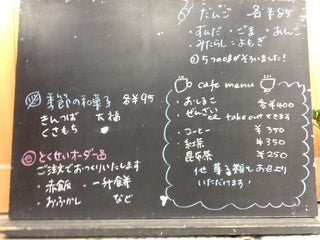 だんご 各¥85
・ずんだ・ごま・あんこ
・みたらし・よもぎ
5つの味がそろいました!
季節の和菓子 各¥95
きんつば 大福
くさもち
とくせいオーダー品
ご注文でおつくりいたします
・赤飯 ・一升餅
・おふかし など
cafe menu
・おしるこ 各¥400
・ぜんざい take outできます
・コーヒー ¥350
・紅茶 ¥350
・昆布茶 ¥250
他 菓子類で お召し上り
いただけます・